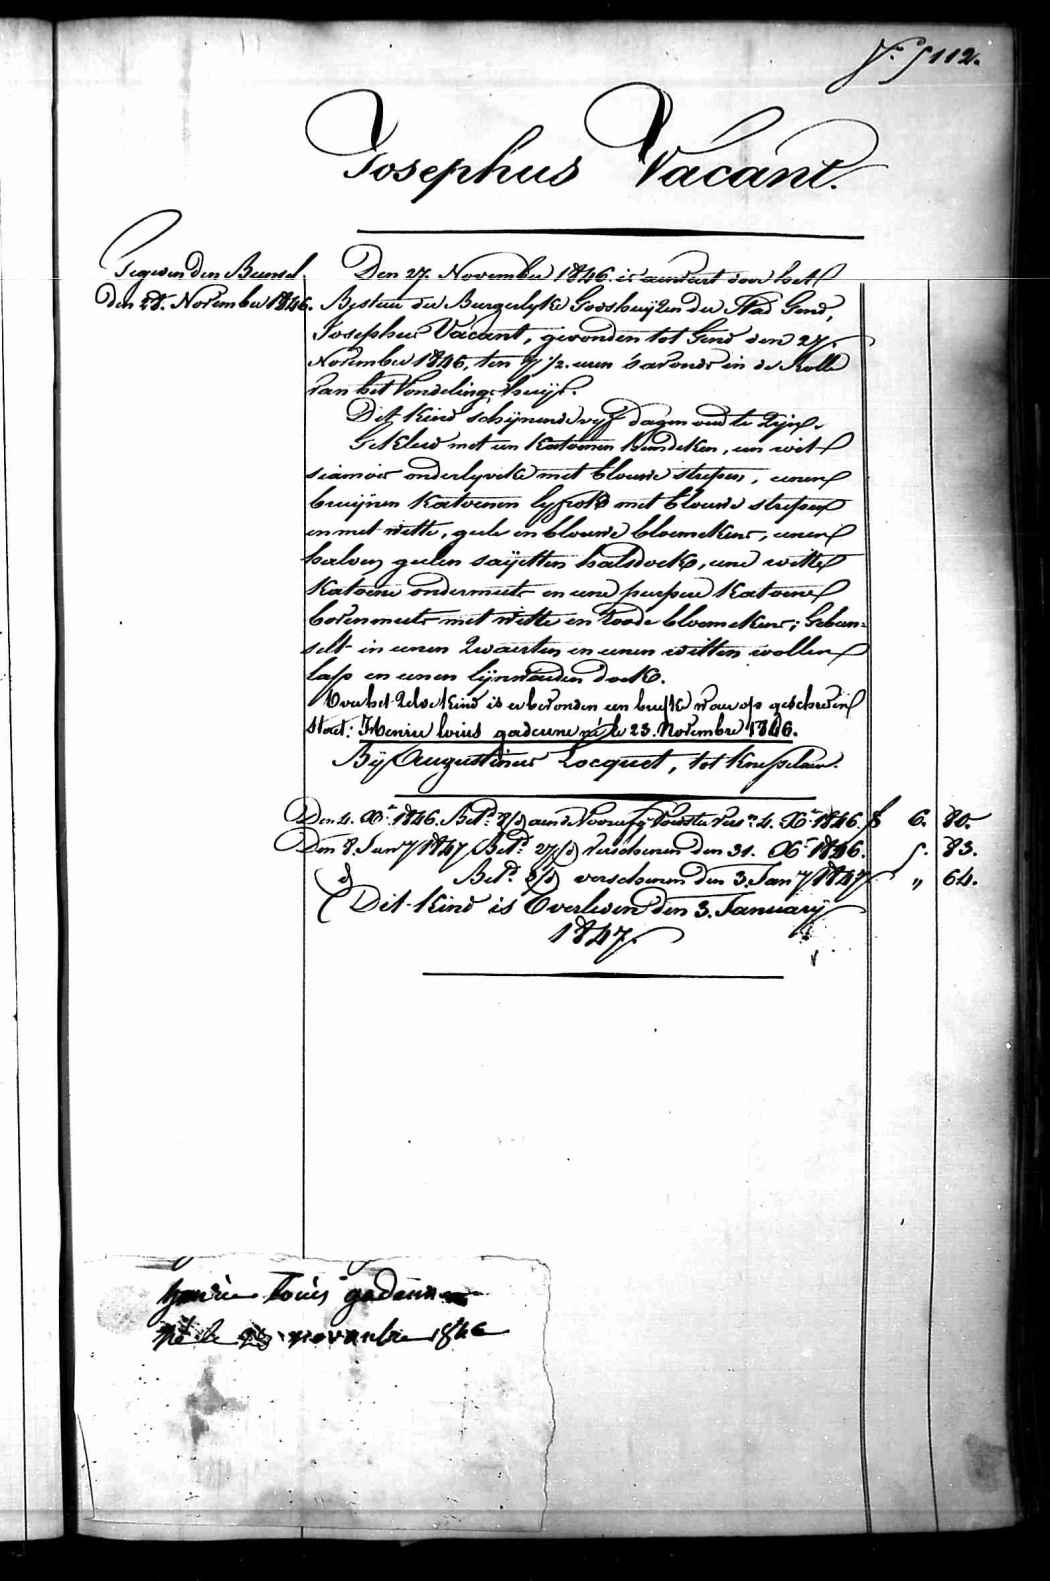 112.
Josephus Vacant.
Gegeven den Bunsel
den 28. November 1846.
Den 27. November 1846. is aenveirt door het
Bestuer der Burgerlyke Godshuijzen der Stad Gend,
Josephus Vacant, gevonden tot Gend den 27.
November 1846, ten 7 1/2. uren 's avonds in de Rolle
van het Vondelings huijs.
Dit Kind schijnende vyf dagen oud te zijn.
Gekleed met een Katoenen bindeken, een wit
siamois onderlyveke met blouwe strepen, eenen
bruijnen Katoenen lyfrok met blouwe strepen
en met witte, geele en blouwe bloemekens, eenen
halven geelen saijetten halsdoek, eene witte
Katoene ondermuts en eene purpere Katoene
bovenmuts met witte en roode bloemekens; Gebun-
selt in eenen Zwaerten en eenen witten wollen
lap en eenen lijnwaeden doek.
Over het Zelve Kind is er bevonden een briefke waer op geschreven
staet: Henrie louis gadeune né le 23. Novembre 1846.
Bij Augustinus Locquet, tot Knesselaere.
Den 4. Xr. 1846. Betd. 8/d aend Voorsten 4. Xr. 1846. f 6. 80.
Den 8. Jany 1847 Betd. 27/d verschenen den 31. Xr. 1846. 5. 83.
d Betd. 3/d verschenen den 3. Jany 1847 " 64.
Dit Kind is Overleden den 3. January
1847.
henrie louis gadeune
né le 23 novembre 1846